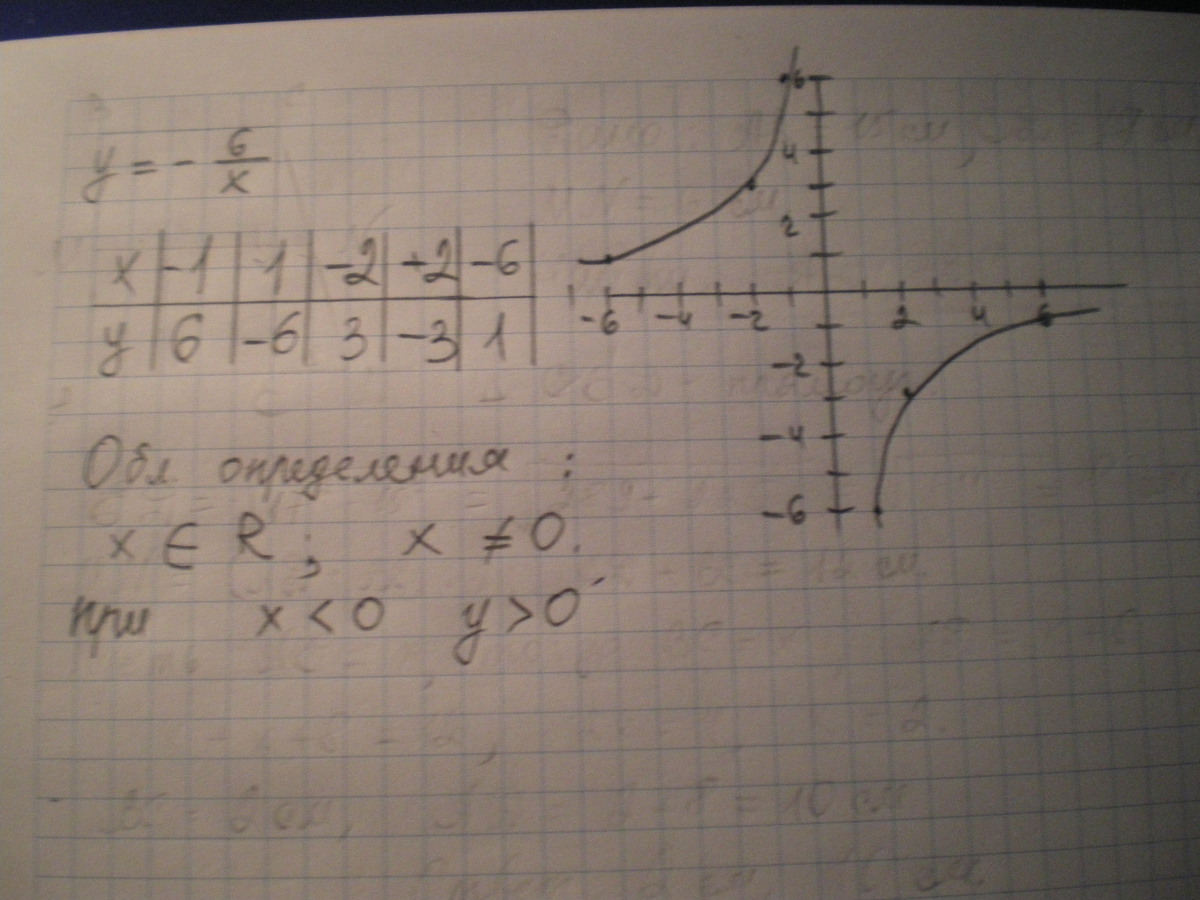 y = - 6/x
x | -1 | 1 | -2 | +2 | -6 |
y | 6 | -6 | 3 | -3 | 1 |
Обл определения :
x ∈ R ; x ≠ 0.
при x < 0 y > 0
6
4
2
-6 -4 -2 2 4 6
-2
-4
-6